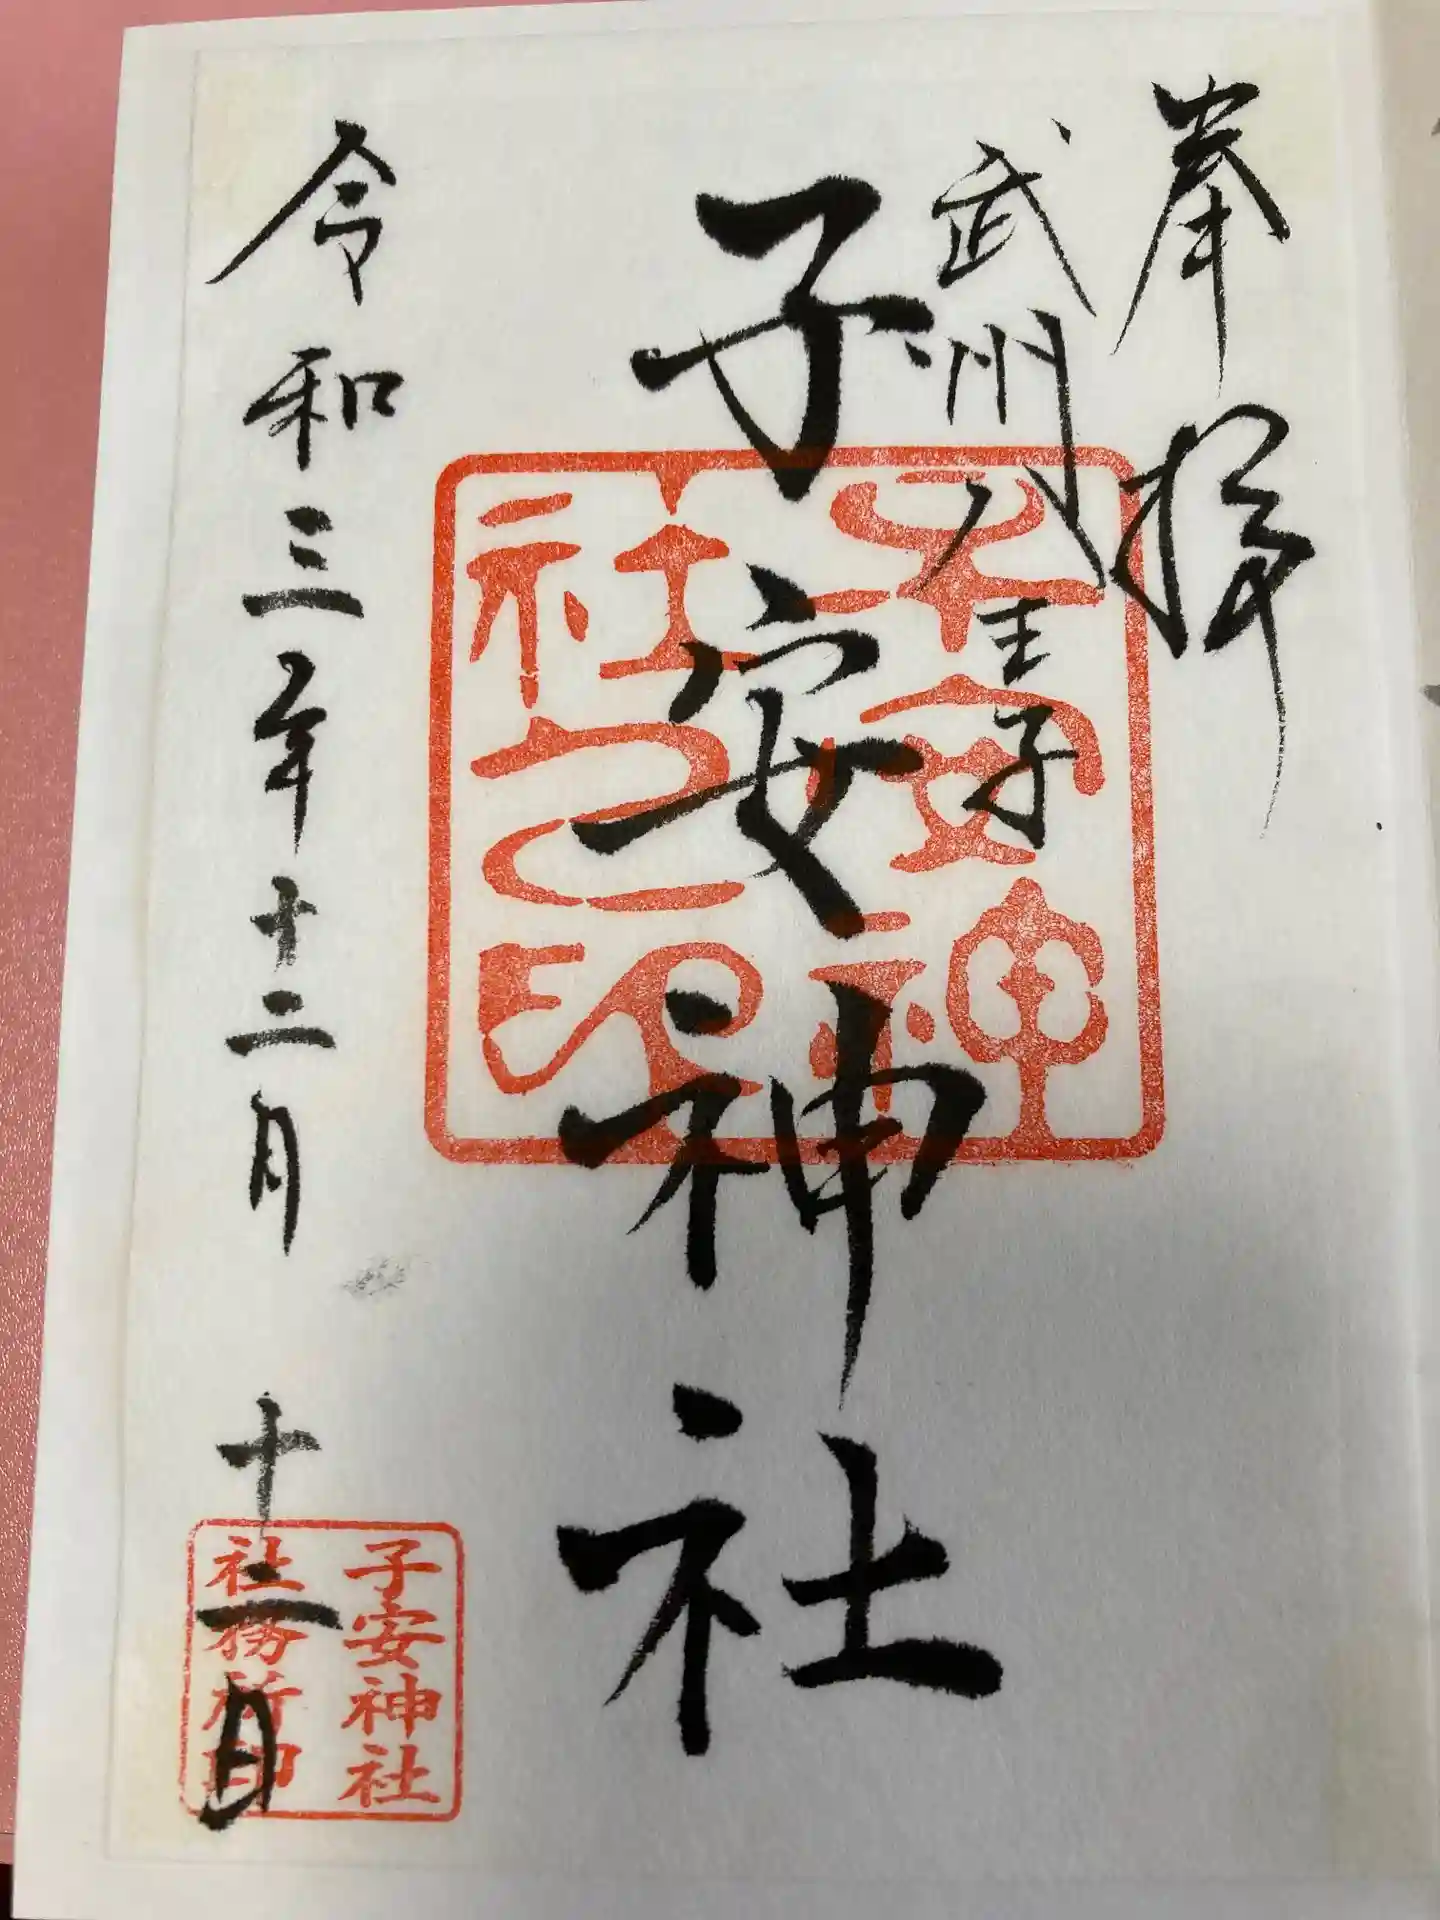 奉拝
武州八王子
子安神社
子安神
社之印
令和三年十二月 十二日
子安神社
社務所印